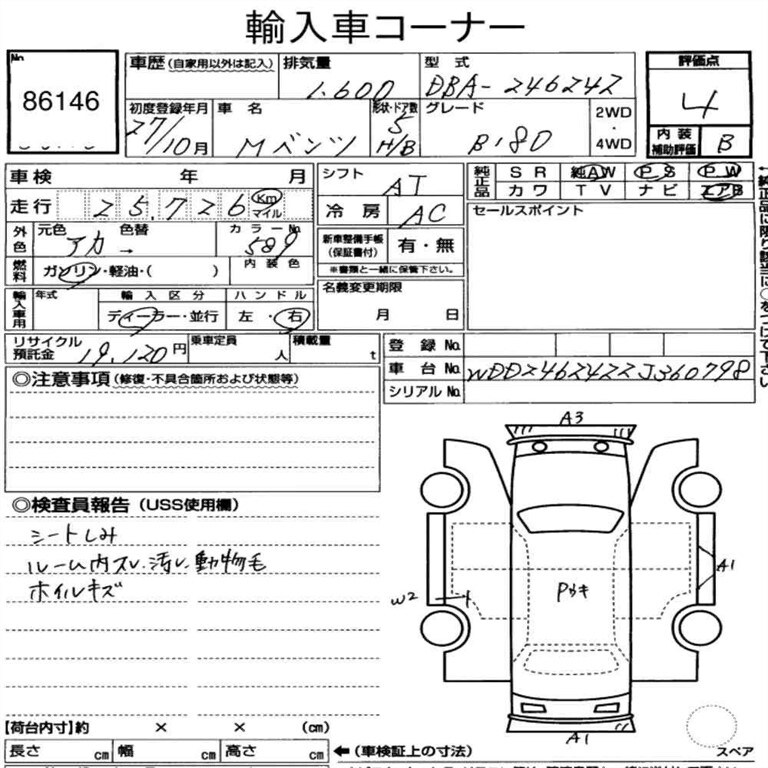 輸入車コーナー
No 86146
車歴 (自家用以外は記入) 排気量 1.600 型式 DBA-246242 評価点 4
初度登録年月 27/10月 車名 Mベンツ 形状・ドア数 5 H/B グレード B180 2WD・4WD 内装補助評価 B
車検 年 月 シフト AT 純正品 SR 純AW PS PW
走行 25.726 Km マイル 冷房 AC カワ TV ナビ エアB
外色 元色 アカ 色替 → カラーNo. 589 新車整備手帳 (保証書付) 有・無 セールスポイント
※書類と一緒に保管下さい。
燃料 ガソリン・軽油・( ) 内装色
名義変更期限 月 日
輸入車用 年式 輸入区分 ディーラー・並行 ハンドル 左・右
リサイクル預託金 19.120円 乗車定員 人 積載量 t 登録No.
車台No. WDD2462422J360798
シリアルNo.
◎注意事項 (修復・不具合箇所および状態等)
←純正品に限り該当に○をつけて下さい
◎検査員報告 (USS使用欄)
シートしみ
ルーム内スレ、汚レ、動物毛
ホイルキズ
A3
A1
W2
A1
スペア
【荷台内寸】約 × × (cm)
長さ cm 幅 cm 高さ cm ←(車検証上の寸法)